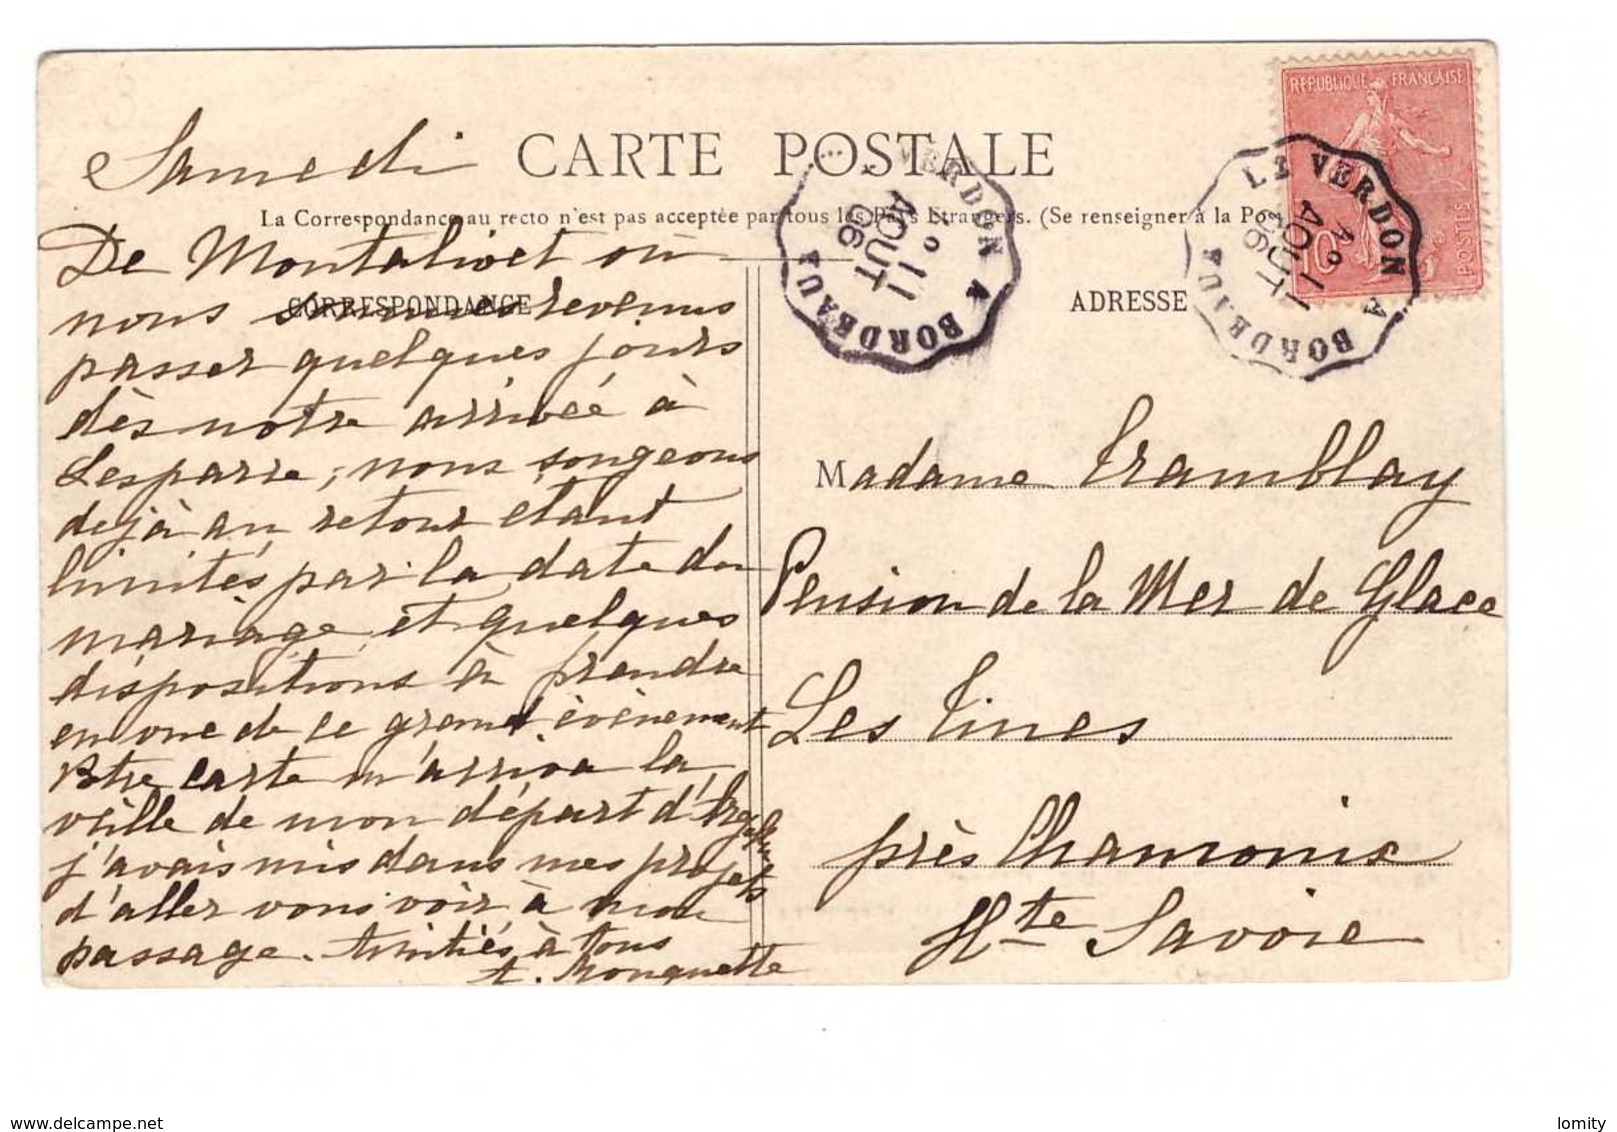 Samedi
CARTE POSTALE
La Correspondance au recto n'est pas acceptée par tous les Pays Etrangers. (Se renseigner à la Po
CORRESPONDANCE
ADRESSE
De Montalivet où
nous sommes revenus
passer quelques jours
dès notre arrivée à
Lesparre, nous songeons
dejà au retour étant
limités par la date du
mariage et quelques
dispositions à prendre
en vue de ce grand évènement
Votre carte m'arriva la
veille de mon départ d'
j'avais mis dans mes projets
d'aller vous voir à mon
passage. Amitiés à tous
A. Mouquette
REPUBLIQUE FRANÇAISE
POSTES
10
LE VERDON A BORDEAUX
Aº
11
AOUT
06
VERDON A BORDEAUX
º
11
AOUT
06
Madame Tramblay
Pension de la Mer de Glace
Les Tines
près Chamonix
Hte Savoie
www.delcampe.net
lomity